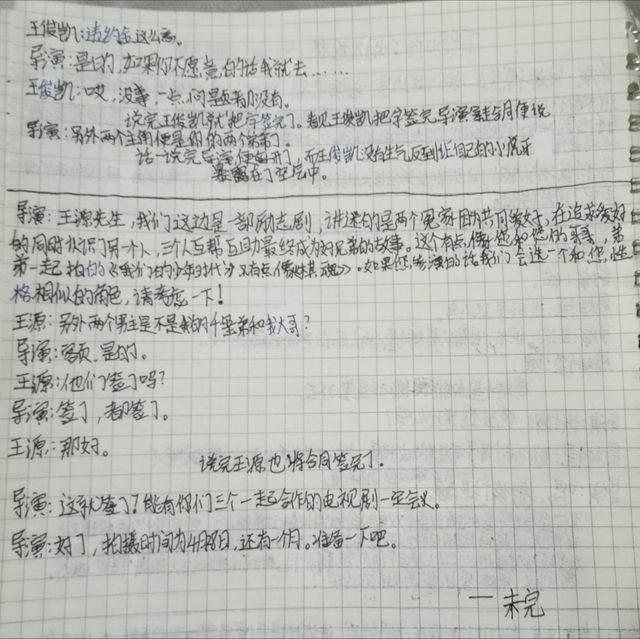 王俊凯:违约金这么高。
导演:是的,如果你不愿意的话我就去……
王俊凯:哎,没事,一点问题都没有。
说完王俊凯就把字签完了。看见王俊凯把字签完导演拿起合同便说
导演:另外两个主角便是你的两个弟弟了。
话一说完导演便离开了,而王俊凯没有生气反到让自己的小虎牙
暴露在了空气中。
导演:王源先生,我们这边是一部励志剧,讲述的是两个冤家因共同爱好,在追求爱好
的同时认识了另一个人,三个人互帮互助最终成为好兄弟的故事。这个有点像您和您的哥哥,弟
弟一起拍的《我们的少年时代》又有点像》。如果您参演的话我们会选一个和您性
格相似的角色,请考虑一下!
王源:另外两个男主是不是我的千玺弟和我大哥?
导演:额 是的。
王源:他们签了吗?
导演:签了,都签了。
王源:那好。
说完王源也将合同签完了。
导演:这就签了?能有你们三个一起合作的电视剧一定会火。
导演:对了,拍摄时间为4月28日,还有一个月。准备一下吧。
——未完